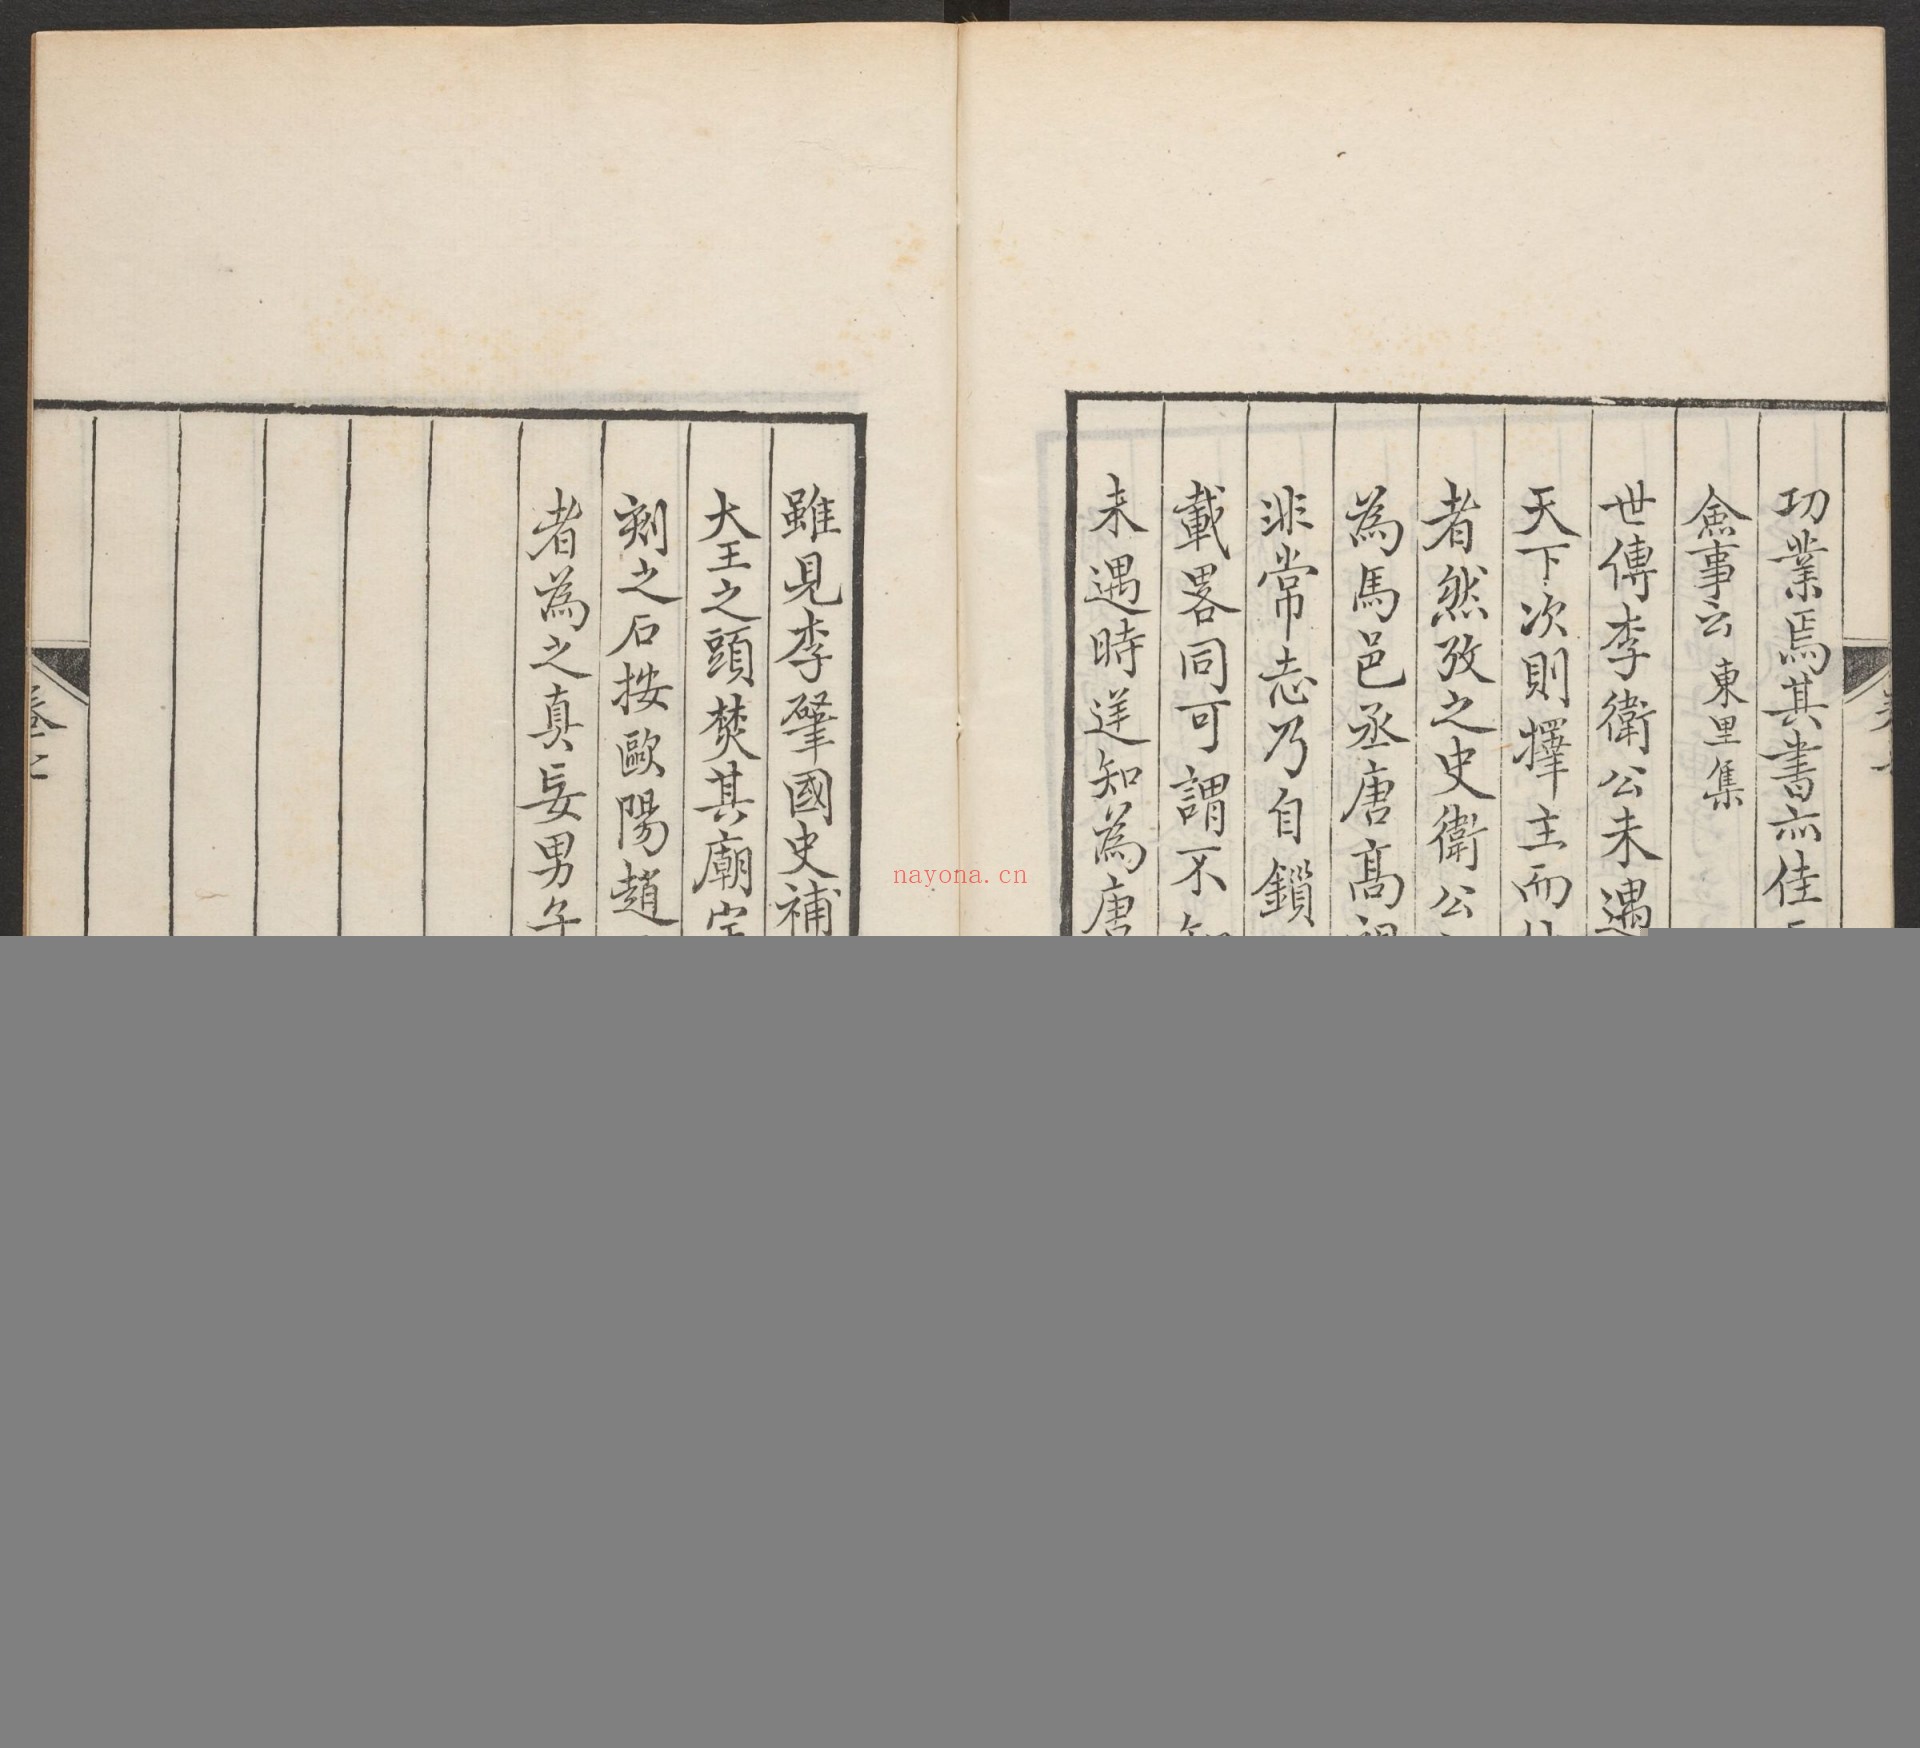 功業焉其書亦佳
僉事云 東里集
世傳李衛公未遇
天下次則擇主而
者然攷之史衛公
為馬邑丞唐高祖
非常志乃自鎖
載畧同可謂不知
未遇時逆知為唐
雖見李肇國史補
大王之頭焚其廟
刻之石按歐陽趙
者為之真妄男子
卷七
nayona.cn